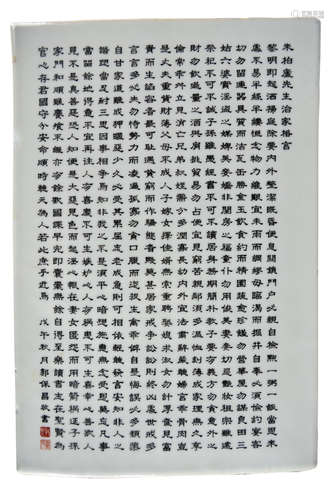 朱柏廬先生治家格言
黎明即起洒掃庭除要內外整潔既昏便息關鎖門戶必親自檢點一粥一飯當思來
處不易半絲半縷恆念物力維艱宜未雨而綢繆毋臨渴而掘井自奉必須儉約宴客
切勿留連器具質而潔瓦缶勝金玉飲食約而精園蔬愈珍饈勿營華屋勿謀良田三
姑六婆實淫盜之媒婢美妾嬌非閨房之福童僕勿用俊美妻妾切忌艷妝祖宗雖遠
祭祀不可不誠子孫雖愚經書不可不讀居身務期簡樸教子要有義方勿貪意外之
財勿飲過量之酒與肩挑貿易勿占便宜見窮苦親鄰須多溫恤刻薄成家理無久享
倫常乖舛立見消亡兄弟叔姪需分多潤寡長幼內外宜法肅辭嚴聽婦言乖骨肉豈
是丈夫重貲財薄父母不成人子嫁女擇佳婿無索重聘娶媳求淑女勿計厚奩見富
貴而生諂容者最可恥遇貧窮而作驕態者賤莫甚居家戒爭訟訟則終凶處世戒多
言言多必失勿恃勢力而凌逼孤寡勿貪口腹而恣殺牲禽乖僻自是悔誤必多頹惰
自甘家道難成狎暱惡少久必受其累屈志老成急則可相依輕聽發言安知非人之
譖愬當忍耐三思因事相爭焉知非我之不是須平心暗想施惠無念受恩莫忘凡事
當留餘地得意不宜再往人有喜慶不可生妒忌心人有禍患不可生喜幸心善欲人
見不是真善惡恐人知便是大惡見色而起淫心報在妻女匿怨而用暗箭禍延子孫
家門和順雖饔飧不繼亦有餘歡國課早完即囊橐無餘自得至樂讀書志在聖賢為
官心存君國守分安命順時聽天為人若此庶乎近焉 戊午秋月郭保昌敬書